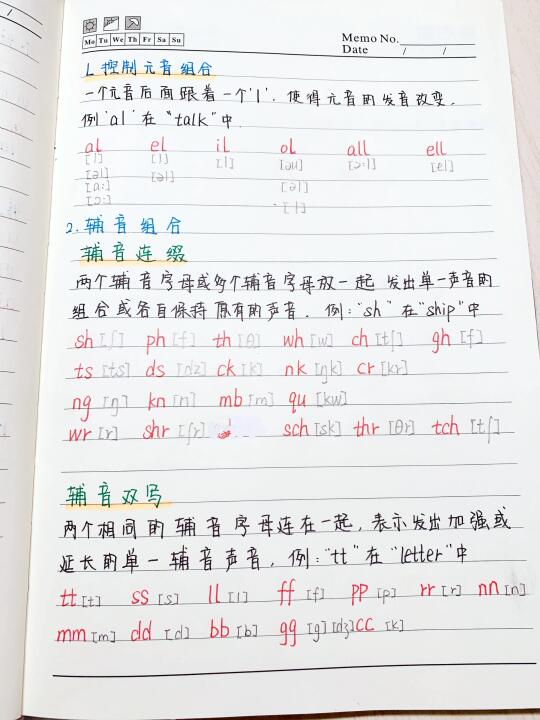 Memo No.
Mo Tu We Th Fr Sa Su
Date / /
L 控制元音组合
一个元音后面跟着一个'l', 使得元音的发音改变,
例 'al' 在 "talk" 中.
al el il ol all ell
[l] [l] [l] [əu] [ɔ:l] [el]
[əl] [əl] [əl]
[ɑ:] [l]
[ɔ:]
2. 辅音组合
辅音连缀
两个辅音字母或多个辅音字母放一起 发出单一声音的
组合或各自保持原有的声音. 例: "sh" 在 "ship" 中
sh [ʃ] ph [f] th [θ] wh [w] ch [tʃ] gh [f]
ts [ts] ds [dz] ck [k] nk [ŋk] cr [kr]
ng [ŋ] kn [n] mb [m] qu [kw]
wr [r] shr [ʃr] sch [sk] thr [θr] tch [tʃ]
辅音双写
两个相同的辅音字母连在一起, 表示发出加强或
延长的单一辅音声音, 例: "tt" 在 "letter" 中
tt [t] ss [s] ll [l] ff [f] pp [p] rr [r] nn [n]
mm [m] dd [d] bb [b] gg [g] [dʒ] cc [k]